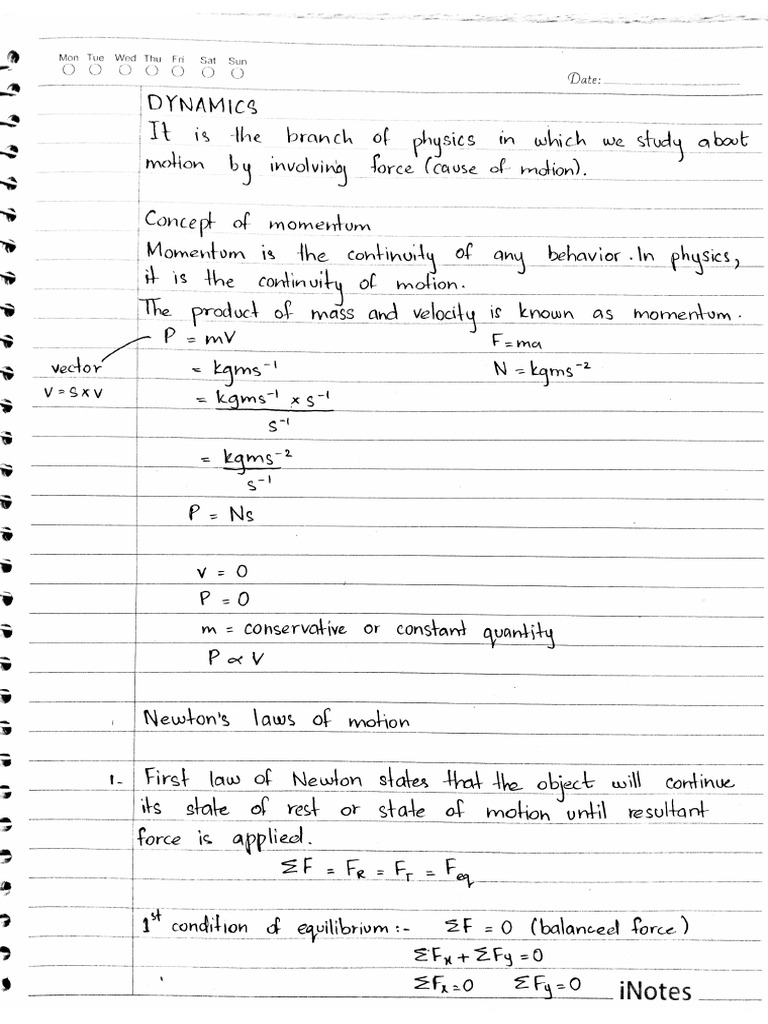 Mon Tue Wed Thu Fri Sat Sun
Date:
DYNAMICS
It is the branch of physics in which we study about
motion by involving force (cause of motion).
Concept of momentum
Momentum is the continuity of any behavior. In physics,
it is the continuity of motion.
The product of mass and velocity is known as momentum.
P = mV
F = ma
vector
= kgms⁻¹
N = kgms⁻²
V = S x V
= kgms⁻¹ x s⁻¹
s⁻¹
= kgms⁻²
s⁻¹
P = Ns
v = 0
P = 0
m = conservative or constant quantity
P ∝ V
Newton's laws of motion
1- First law of Newton states that the object will continue
its state of rest or state of motion until resultant
force is applied.
ΣF = F_R = F_T = F_eq
1st condition of equilibrium :- ΣF = 0 (balanceel force)
ΣFx + ΣFy = 0
ΣFx = 0 ΣFy = 0
iNotes